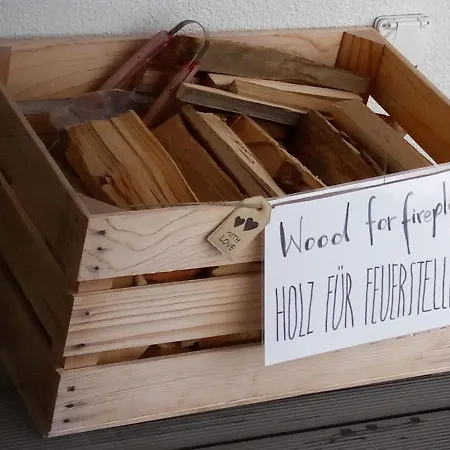 WITH
LOVE
Wood for firepl
HOLZ FÜR FEUERSTELL